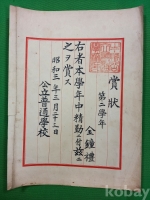 賞狀
第二學年
金鐘禮
右者本學年中精勤ニ付茲ニ
之ヲ賞ス
昭和三年三月二十三日
公立普通學校
kobay